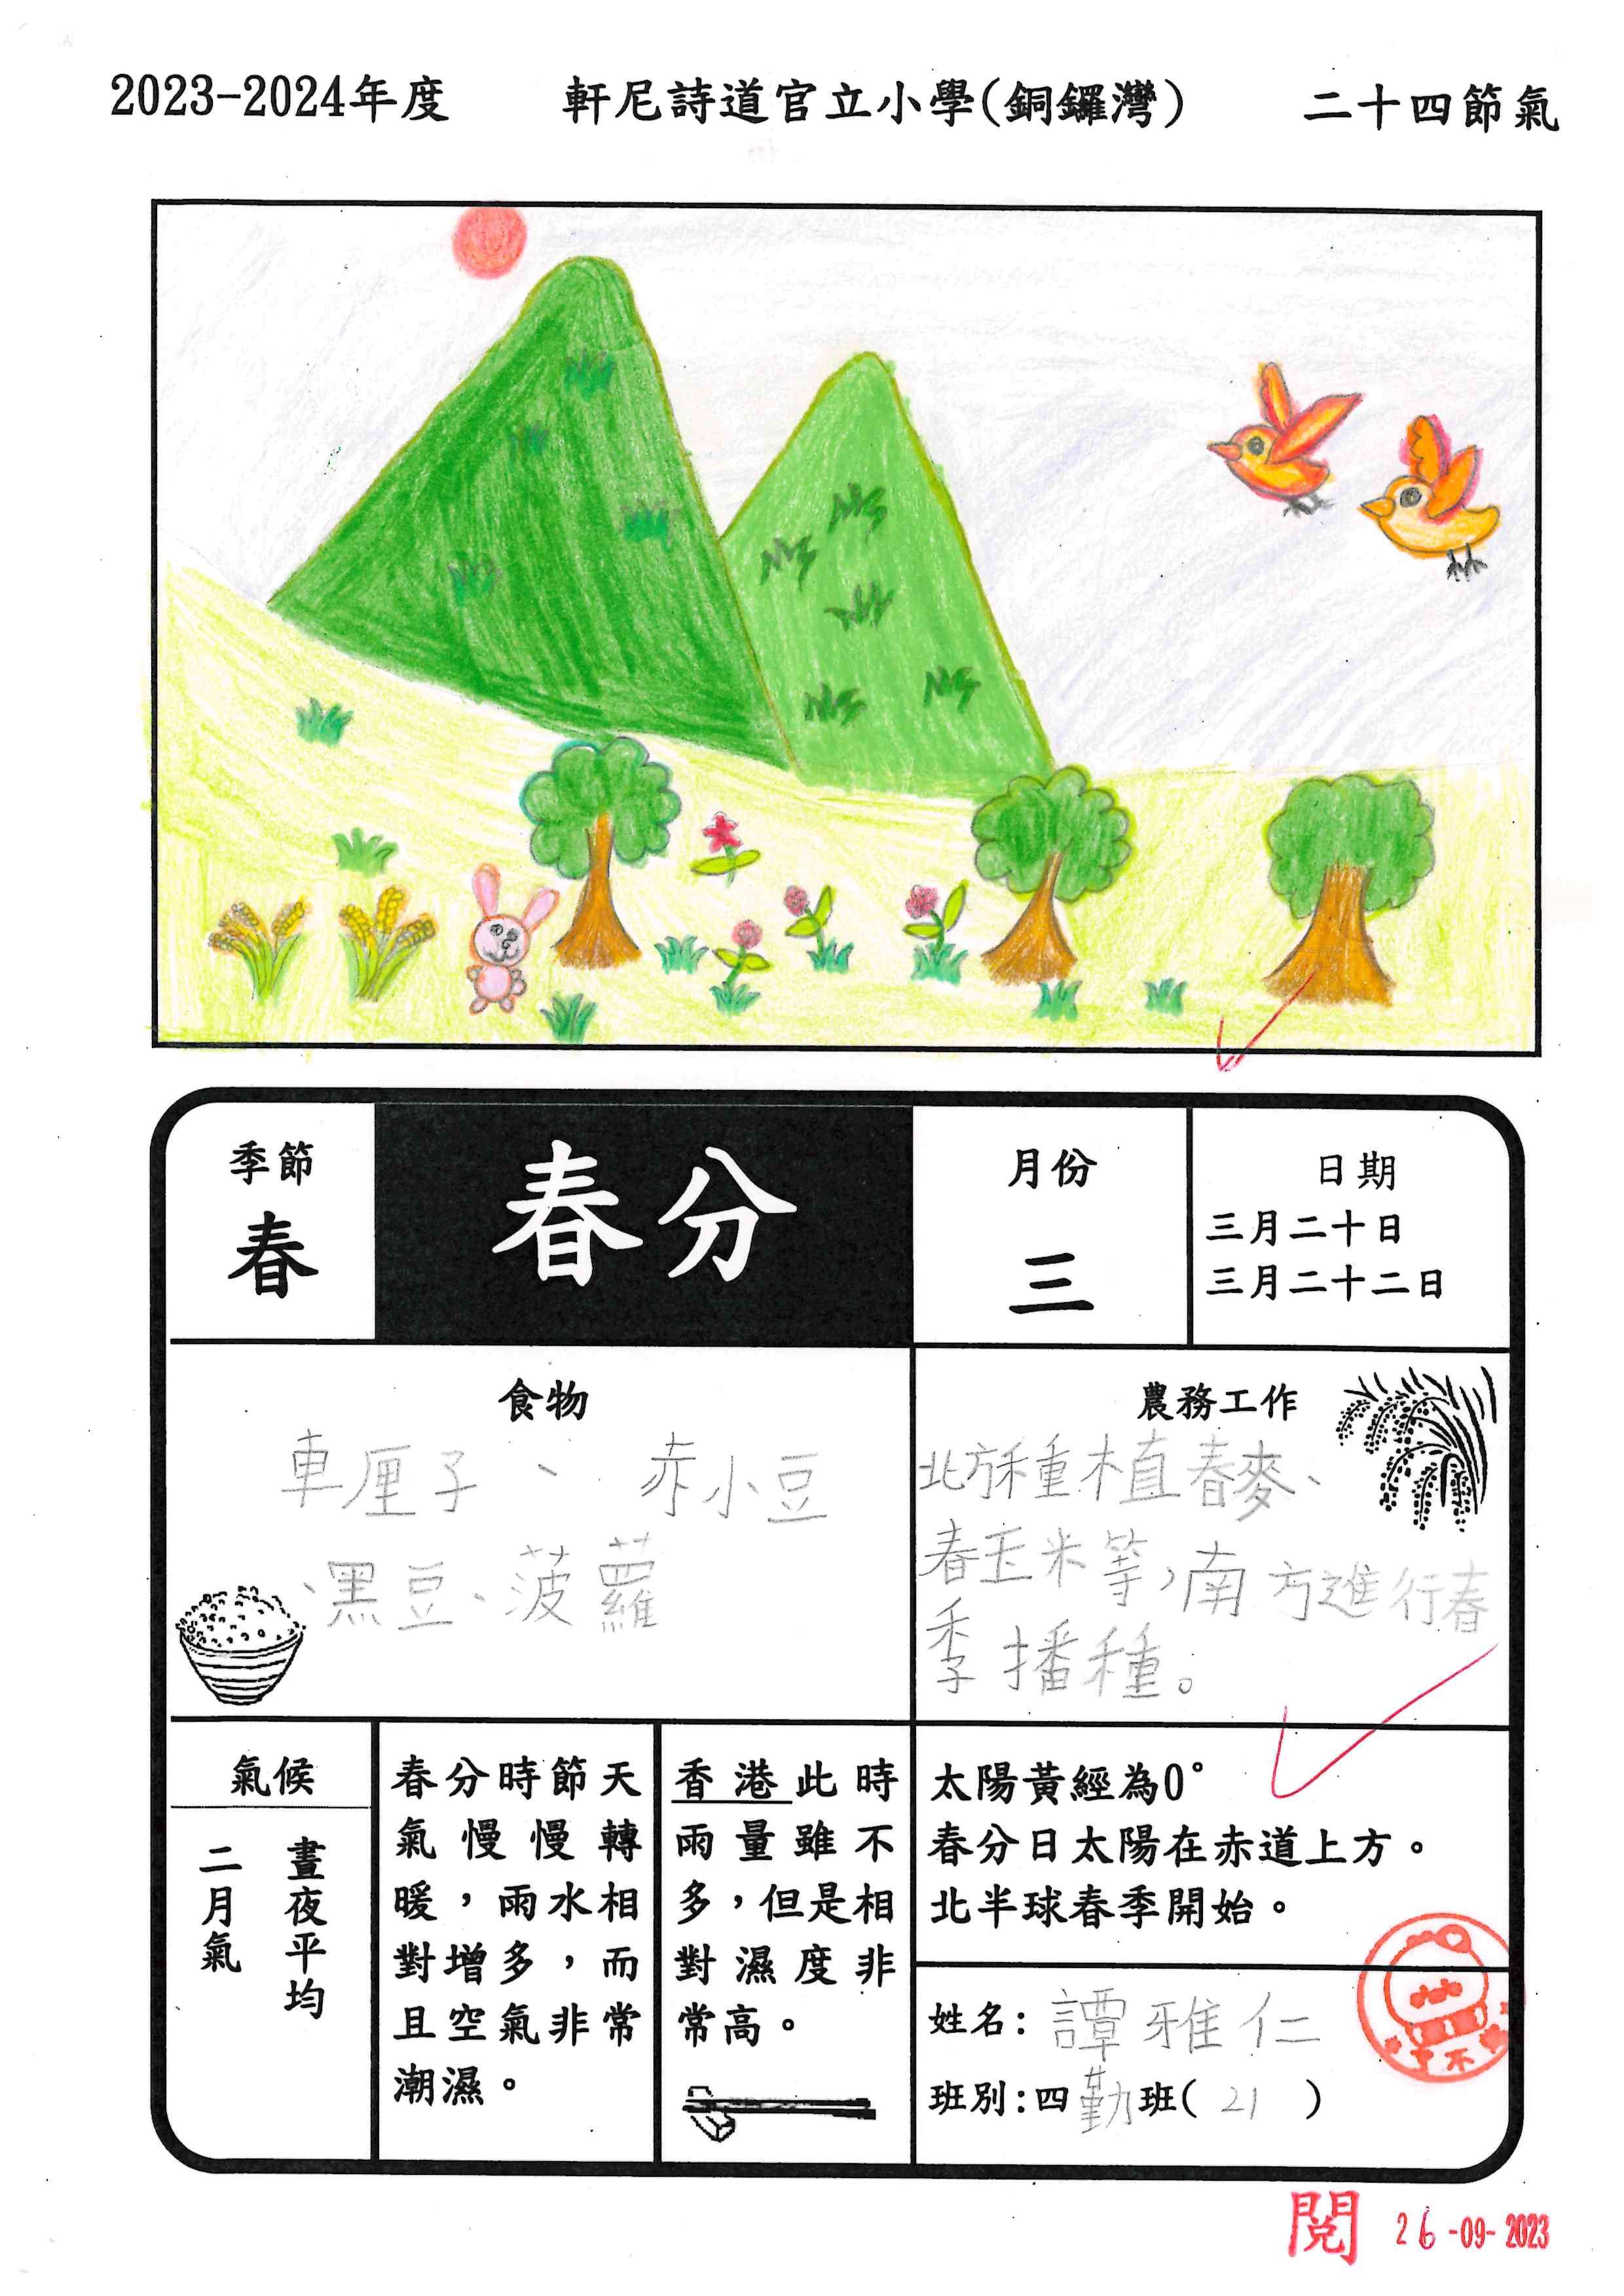 2023-2024年度 軒尼詩道官立小學(銅鑼灣) 二十四節氣
季節
春
春分
月份
三
日期
三月二十日
三月二十二日
食物
車厘子、赤小豆
、黑豆、菠蘿
農務工作
北方種植春麥、
春玉米等，南方進行春
季播種。
氣候
晝夜平均
二月氣
春分時節天
氣慢慢轉
暖，雨水相
對增多，而
且空氣非常
潮濕。
香港此時
雨量雖不
多，但是相
對濕度非
常高。
太陽黃經為0°
春分日太陽在赤道上方。
北半球春季開始。
姓名：譚雅仁
班別：四勤班( 21 )
閱 26-09-2023